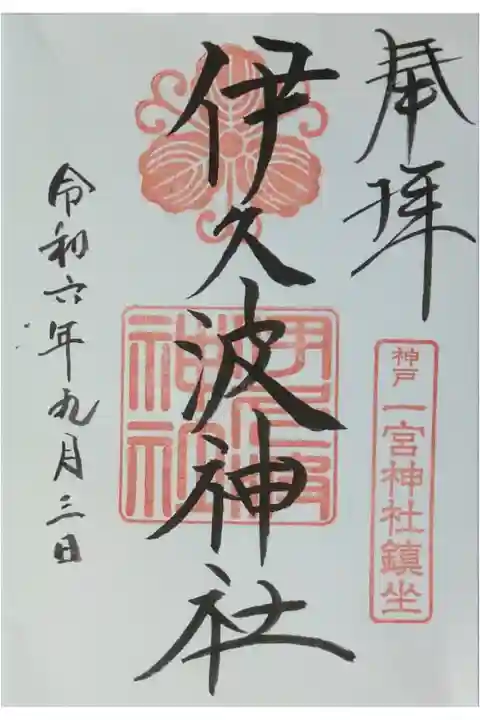 奉拝
神戸一宮神社鎮坐
伊久波神社
伊久波
神社
令和六年九月三日